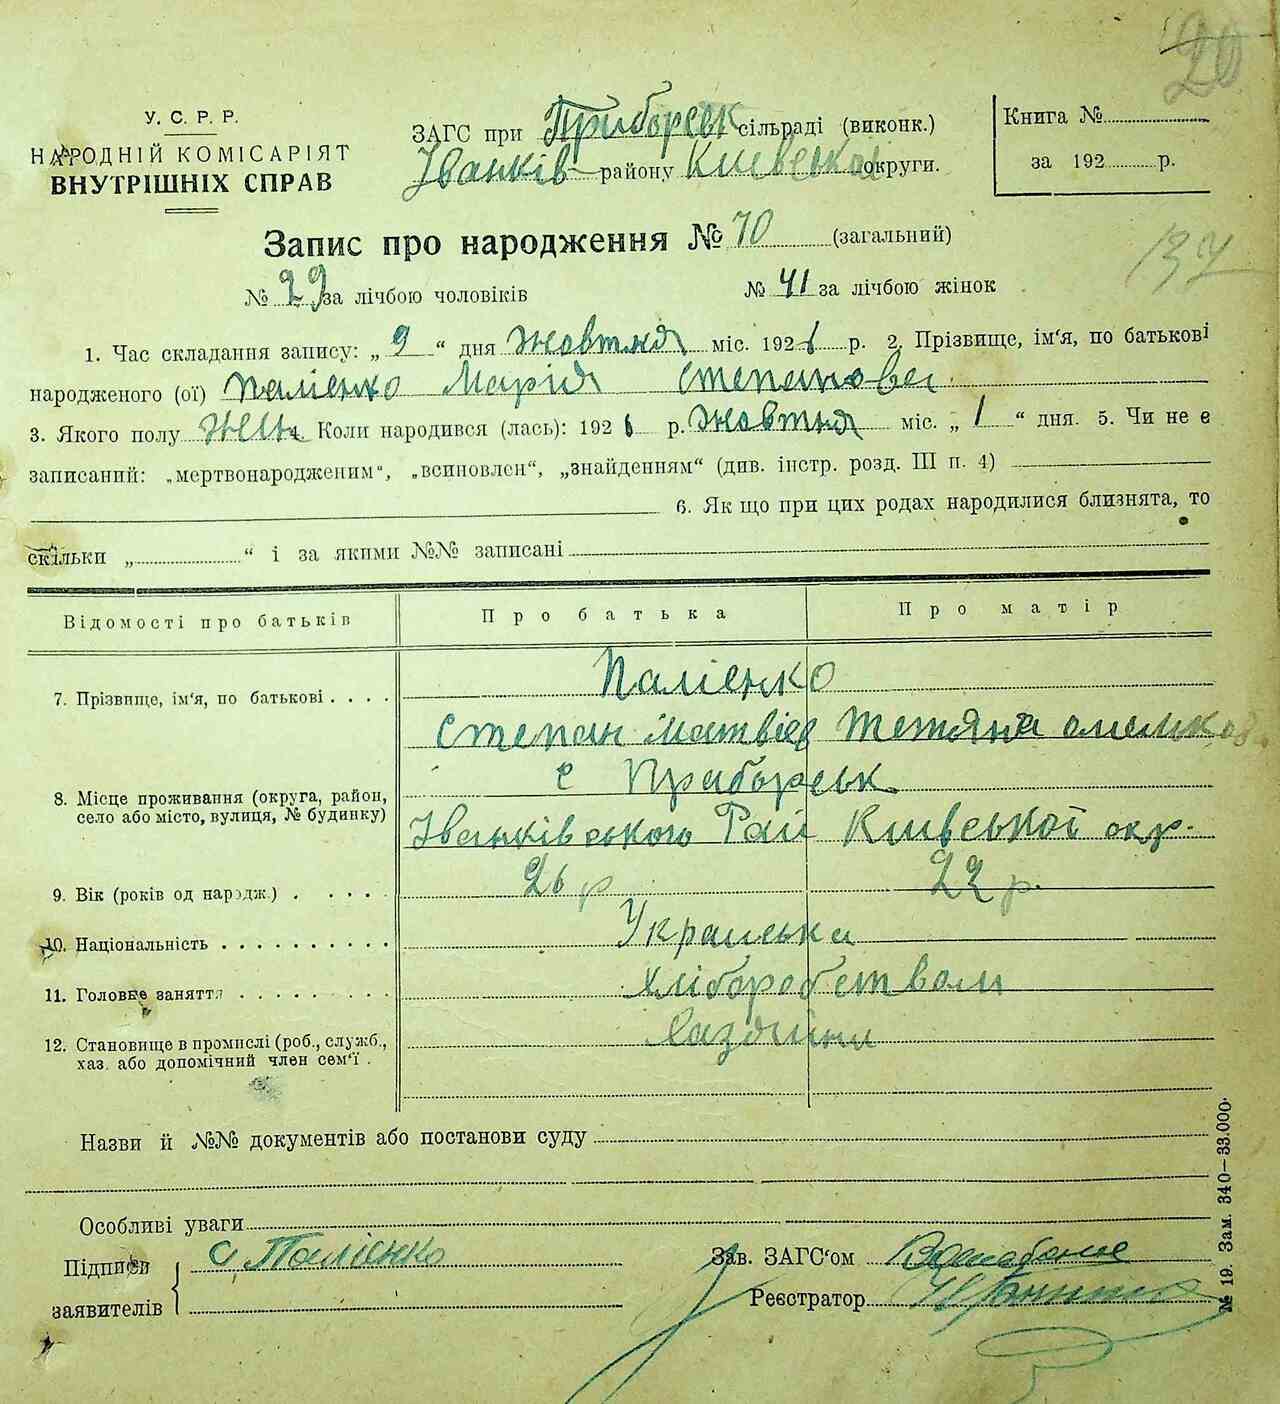 20
У. С. Р. Р.
НАРОДНІЙ КОМІСАРІЯТ
ВНУТРІШНІХ СПРАВ
ЗАГС при Приборськ сільраді (виконк.)
Іванків району Київської округи.
Книга №
за 192 р.
Запис про народження № 70 (загальний)
137
№ 29 за лічбою чоловіків № 41 за лічбою жінок
1. Час складання запису: „ 9 “ дня жовтня міс. 1926 р. 2. Прізвище, ім'я, по батькові
народженого (ої) Палієнко Марія Степанова
3. Якого полу жін 4. Коли народився (лась): 1926 р. жовтня міс. „ 1 “ дня. 5. Чи не є
записаний: „мертвонародженим“, „всиновлен“, „знайденням“ (див. інстр. розд. III п. 4)
6. Як що при цих родах народилися близнята, то
скільки „ “ і за якими №№ записані
Відомості про батьків Про батька Про матір
7. Прізвище, ім'я, по батькові . . . . Палієнко
Степан Матвіев Тетяна
8. Місце проживання (округа, район, с Приборськ
село або місто, вулиця, № будинку) Іванківського Рай Київської окр.
9. Вік (років од народж.) . . . . . 26 р 22 р.
10. Національність . . . . . . . . . . Українська
11. Головне заняття . . . . . . . . . Хліборобством
12. Становище в промислі (роб., служб.,
хаз. або допомічний член сем'ї .
Назви й №№ документів або постанови суду
Особливі уваги
Підписи С Палієнко Зав. ЗАГС'ом
заявителів Реєстратор
№ 19. Зам. 340—33.000.